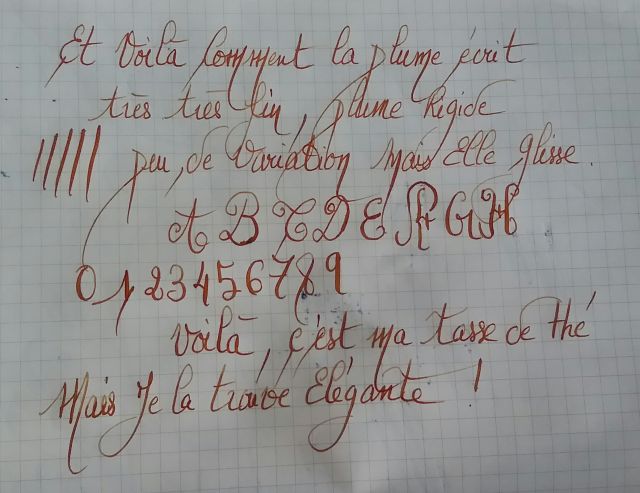 Et Voilà Comment la plume écrit
très très fin, plume Rigide
peu, de Variation mais Elle glisse.
A B C D E F G H
0 1 2 3 4 5 6 7 8 9
Voilà, c'est ma tasse de thé
Mais Je la trouve Elégante !